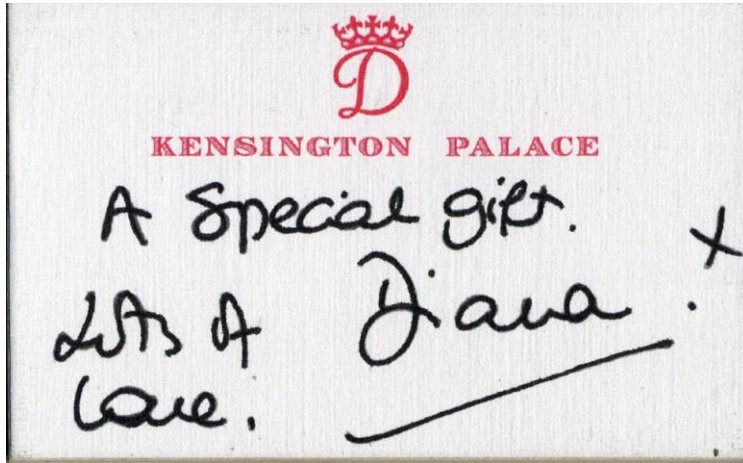 D
KENSINGTON PALACE
A Special gift.
Lots of Diana. x
love.